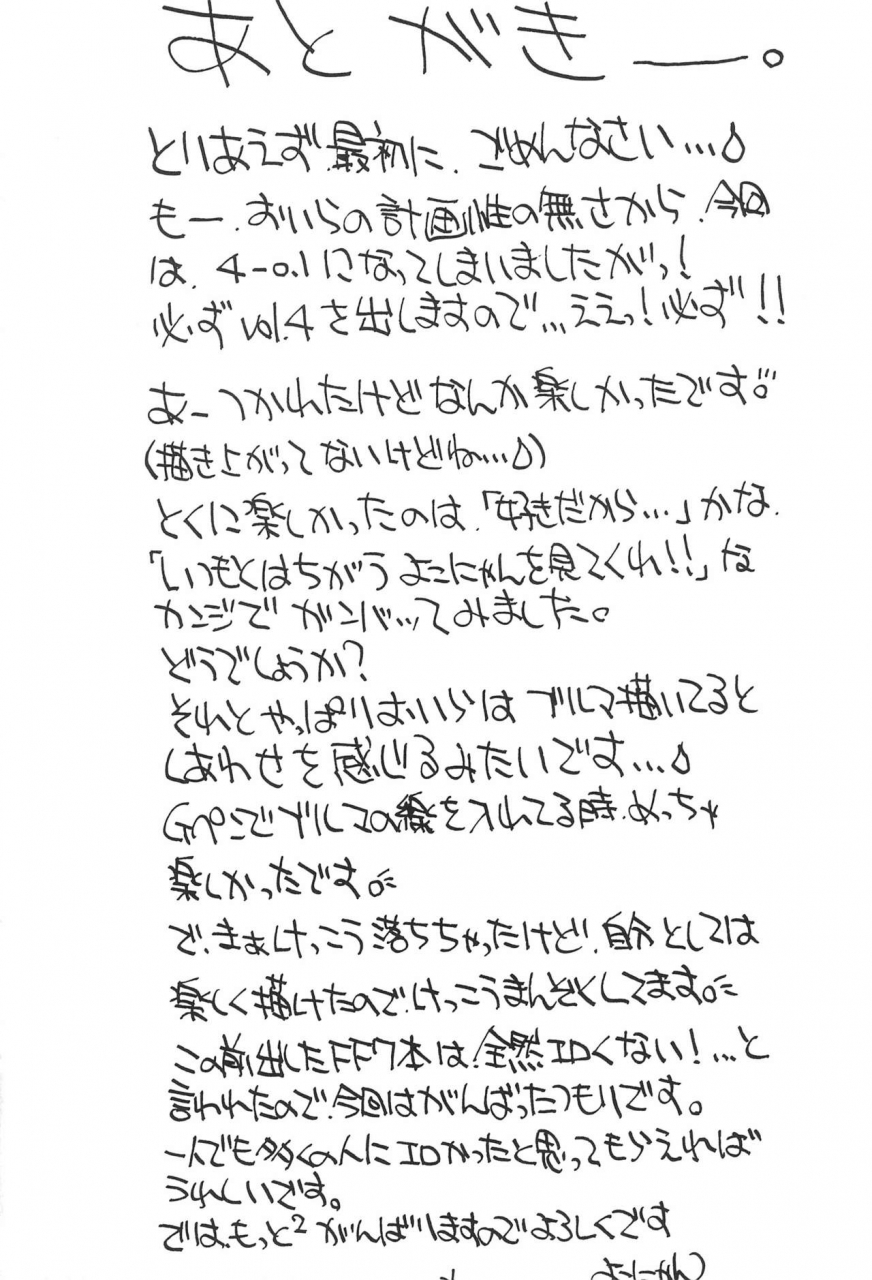 あとがきー。
とりあえず、最初に、ごめんなさい…
もー、おいらの計画性の無さから、今回
は、4-0.1になってしまいましたがっ!
必ずvol.4を出しますので…ええっ!必ず!!
あーつかれたけどなんか楽しかったです。
(描き上がってないけどね…)
とくに楽しかったのは、「好きだから…」かな、
「いつもとはちがうよこにゃんを見てくれ!!」な
カンジでガンバッてみました。
どうでしょうか?
それとやっぱりおいらはブルマ描いてると
しあわせを感じるみたいです…
Gペンでブルマの線を入れてる時、めっちゃ
楽しかったです。
で、まぁけっこう落ちちゃったけど、自分としては
楽しく描けたので、けっこうまんぞくしてます。
この前出したFF7本は、全然エロくない!…と
言われたので、今回はがんばったつもりです。
一人でも多くの人にエロかったと思ってもらえれば
うれしいです。
では、もっと2がんばりますのでよろしくです